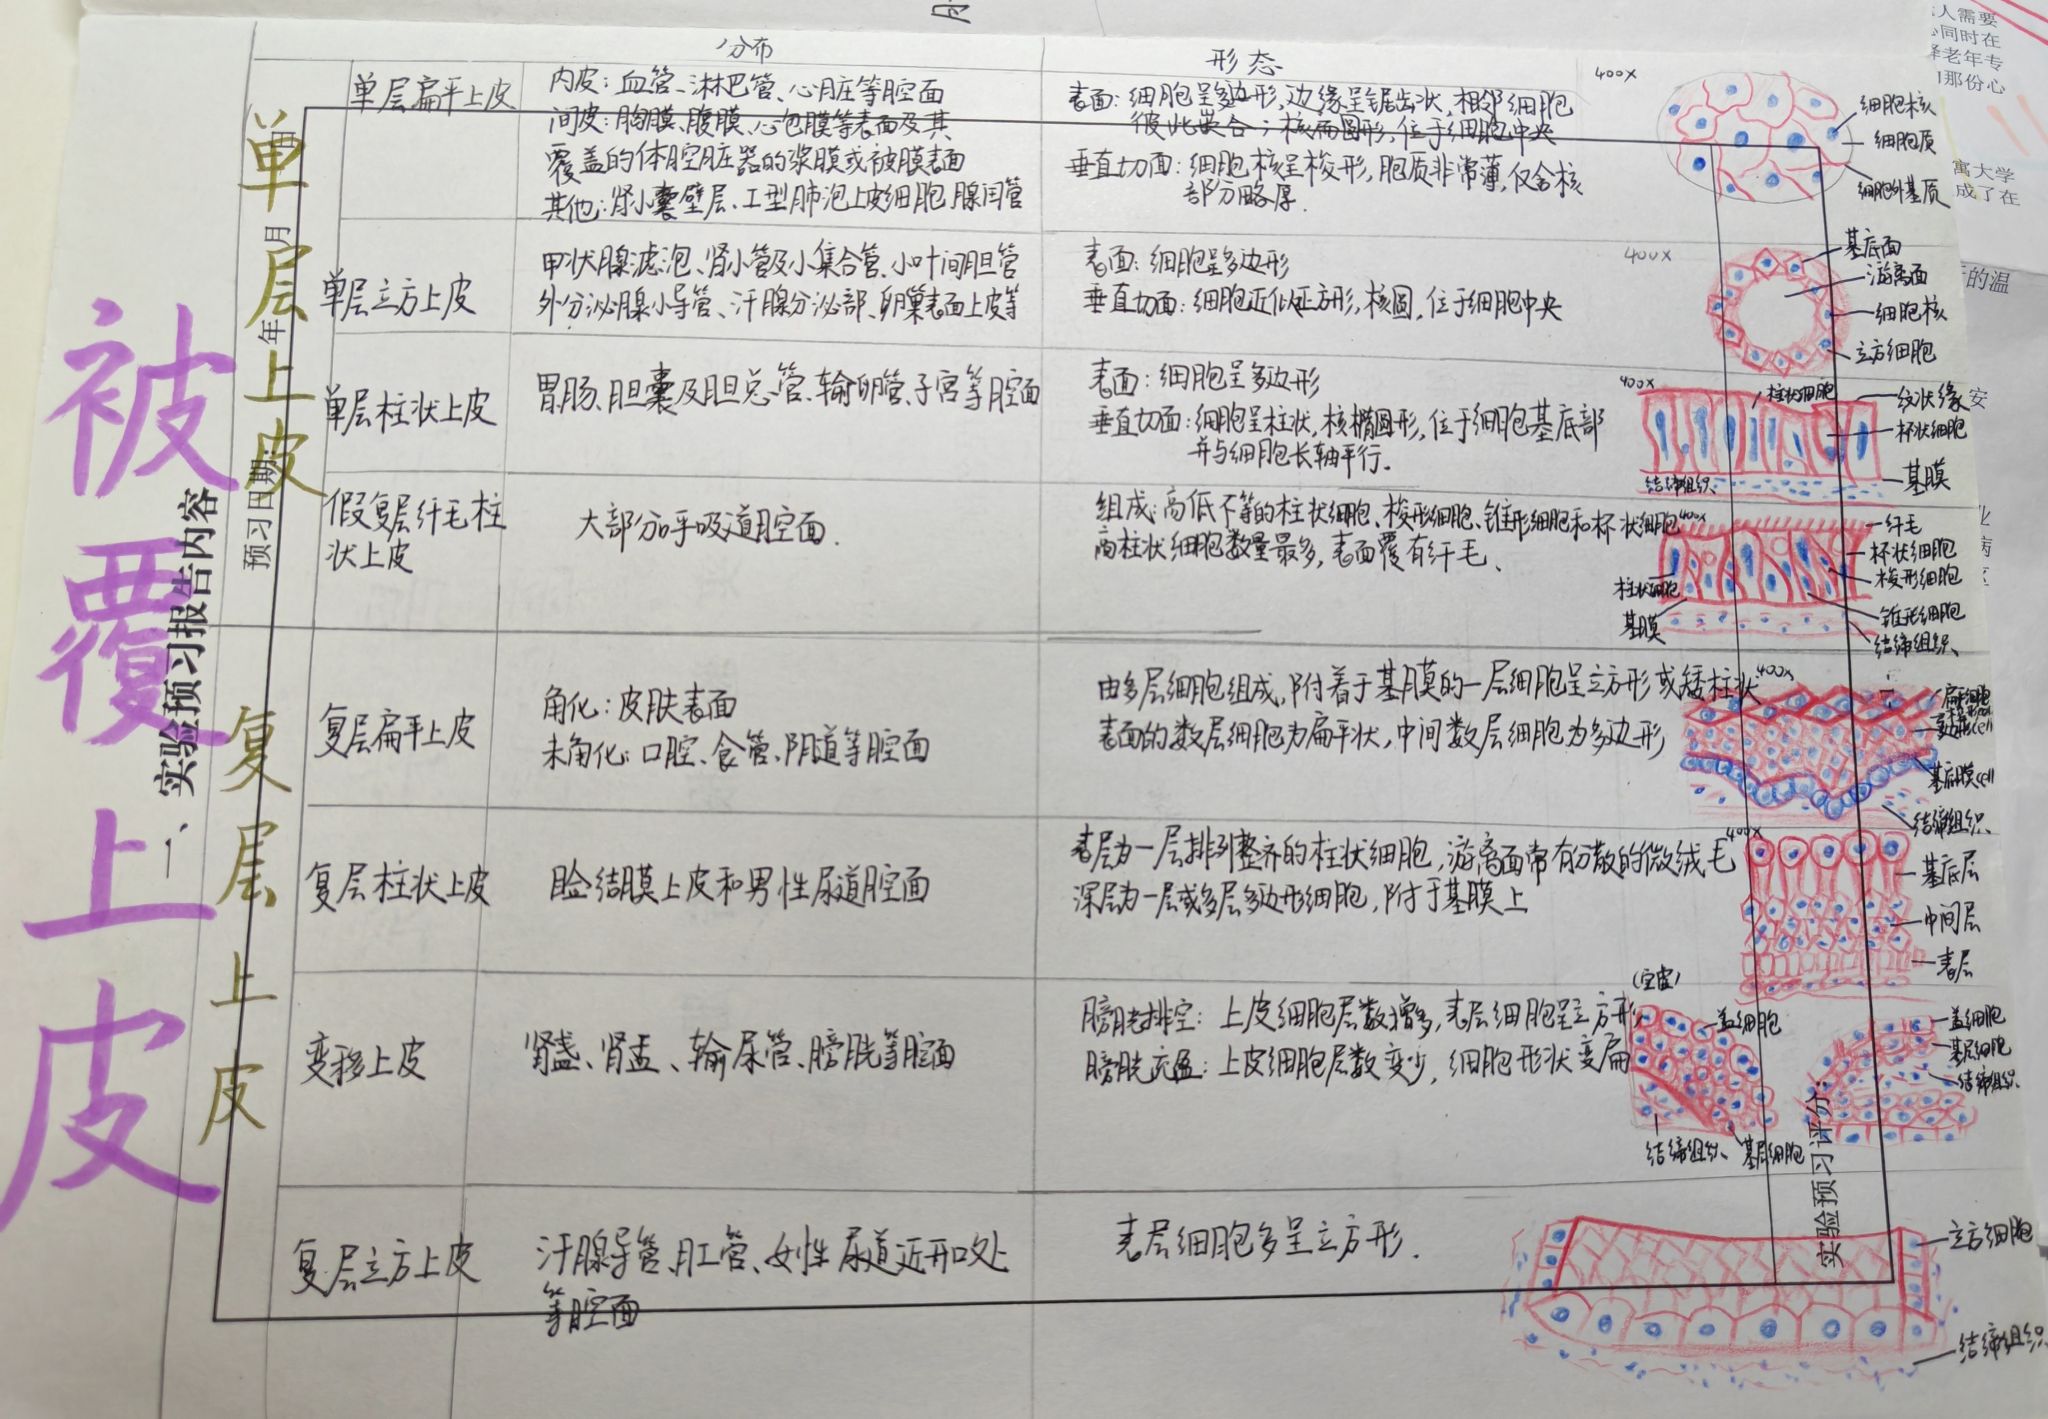 分布
形态
单层扁平上皮
内皮：血管、淋巴管、心脏等腔面
间皮：胸膜、腹膜、心包膜等表面及其
覆盖的体腔脏器的浆膜或被膜表面
其他：肾小囊壁层、I型肺泡上皮细胞、腺闰管
表面：细胞呈多边形，边缘呈锯齿状，相邻细胞
彼此嵌合；核扁圆形，位于细胞中央
垂直切面：细胞核呈梭形，胞质非常薄，仅含核
部分略厚.
400×
细胞核
细胞质
细胞外基质
单层立方上皮
甲状腺滤泡、肾小管及小集合管、小叶间胆管
外分泌腺小导管、汗腺分泌部、卵巢表面上皮等
表面：细胞呈多边形
垂直切面：细胞近似正方形，核圆，位于细胞中央
400×
基底面
游离面
细胞核
立方细胞
单层柱状上皮
胃肠、胆囊及胆总管、输卵管、子宫等腔面
表面：细胞呈多边形
垂直切面：细胞呈柱状，核椭圆形，位于细胞基底部
并与细胞长轴平行.
400×
柱状细胞
纹状缘
杯状细胞
基膜
结缔组织
假复层纤毛柱
状上皮
大部分呼吸道腔面.
组成：高低不等的柱状细胞、梭形细胞、锥形细胞和杯状细胞
而柱状细胞数量最多，表面覆有纤毛.
400×
纤毛
杯状细胞
梭形细胞
柱状细胞
基膜
锥形细胞
结缔组织
复层扁平上皮
角化：皮肤表面
未角化：口腔、食管、阴道等腔面
由多层细胞组成，附着于基膜的一层细胞呈立方形或矮柱状
表面的数层细胞为扁平状，中间数层细胞为多边形
400×
多边形cell
基底膜cell
结缔组织
复层柱状上皮
睑结膜上皮和男性尿道腔面
表层为一层排列整齐的柱状细胞，游离面常有分散的微绒毛
深层为一层或多层多边形细胞，附于基膜上
400×
基底层
中间层
表层
变移上皮
肾盏、肾盂、输尿管、膀胱等腔面
膀胱排空：上皮细胞层数增多，表层细胞呈立方形
膀胱充盈：上皮细胞层数变少，细胞形状变扁
盖细胞
结缔组织
基层细胞
盖细胞
基层细胞
结缔组织
复层立方上皮
汗腺导管、肛管、女性尿道近开口处
等腔面
表层细胞多呈立方形.
立方细胞
结缔组织
被覆上皮
单层上皮
复层上皮
一、实验预习报告内容
预习日期：
年 月
实验预习评分：
人需要
同时在
择老年专
那份心
寓大学
成了在
的温
安